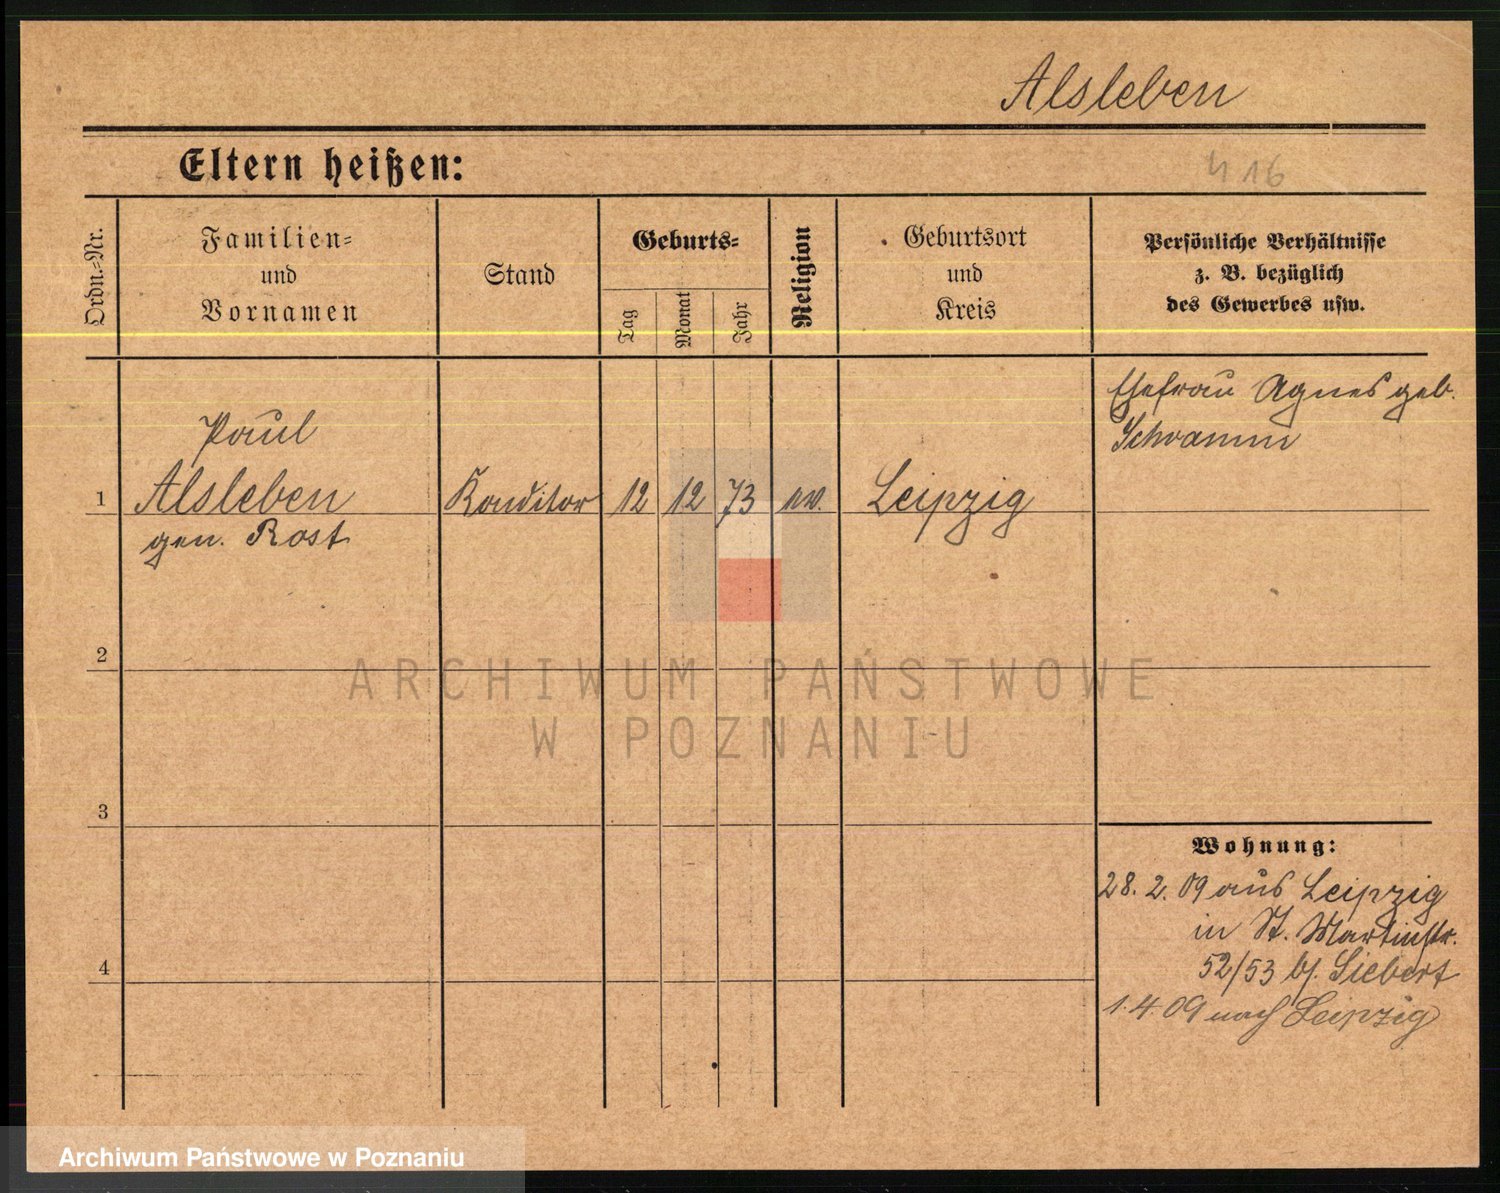 Alsleben
Eltern heißen:
416
Ordn.-Nr.
Familien-
und
Vornamen
Stand
Geburts-
Tag
Monat
Jahr
Religion
Geburtsort
und
Kreis
Persönliche Verhältnisse
z. B. bezüglich
des Gewerbes usw.
Ehefrau Agnes geb.
Schramm
Paul
1 Alsleben Konditor 12 12 73 ev. Leipzig
gen. Rost
2
ARCHIWUM PAŃSTWOWE
W POZNANIU
3
Wohnung:
28. 2. 09 aus Leipzig
in St. Martinstr.
4 52/53 b/. Siebert
1. 4. 09 nach Leipzig
Archiwum Państwowe w Poznaniu